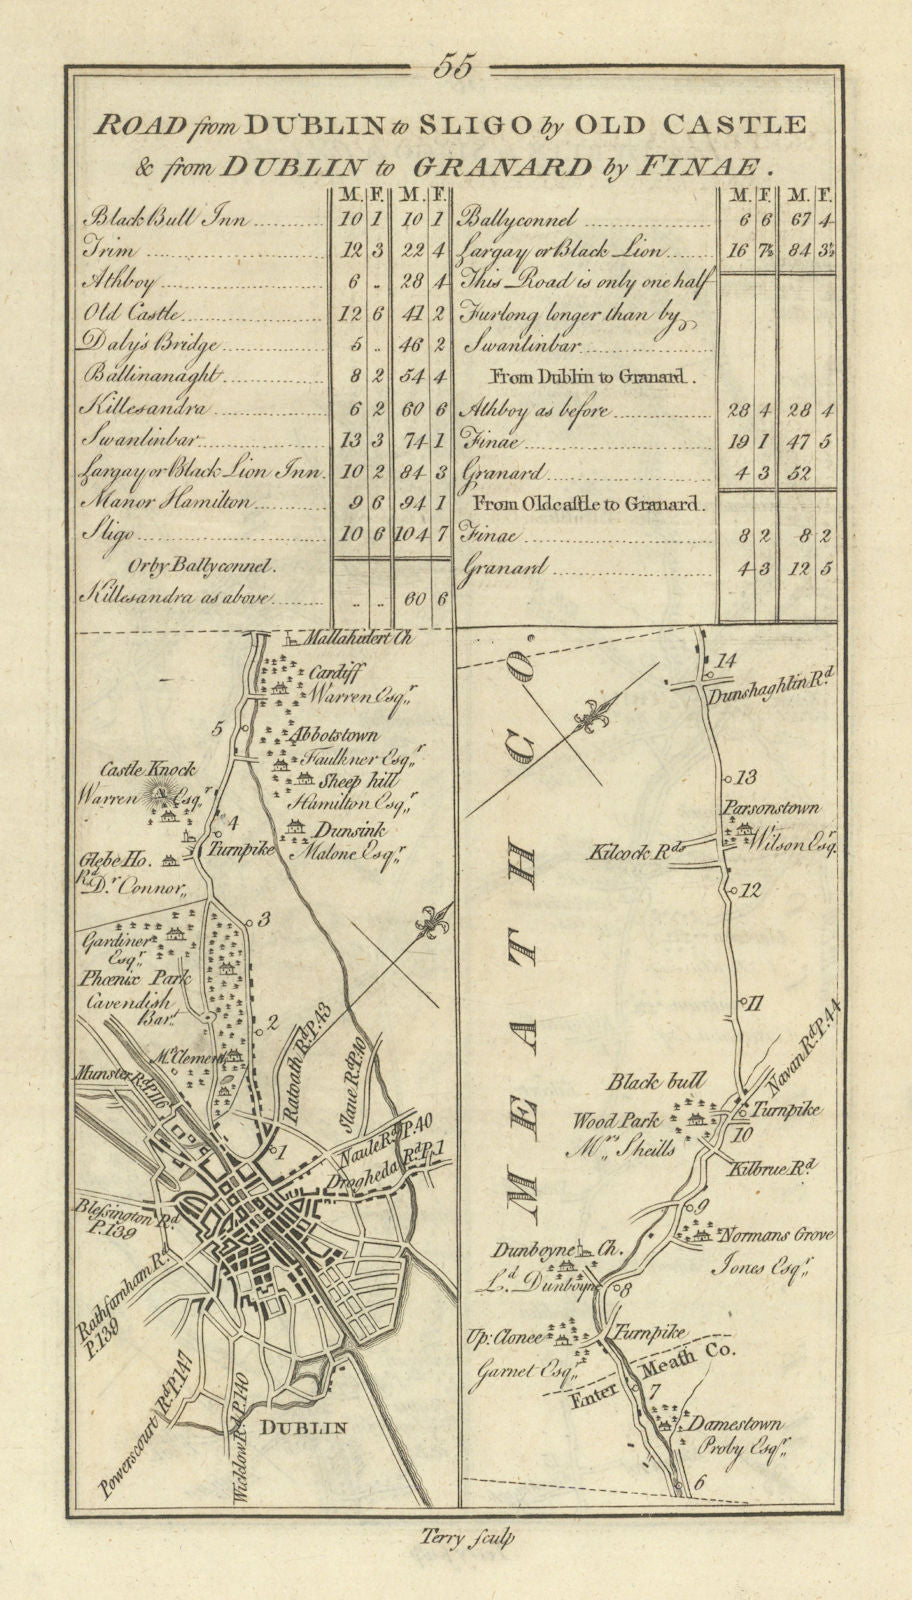 55
ROAD from DUBLIN to SLIGO by OLD CASTLE
& from DUBLIN to GRANARD by FINAE.
M. F. M. F.
Black Bull Inn 10 1 10 1
Trim 12 3 22 4
Athboy 6 .. 28 4
Old Castle 12 6 41 2
Daly's Bridge 5 .. 46 2
Ballinanaght 8 2 54 4
Killesandra 6 2 60 6
Swanlinbar 13 3 74 1
Largay or Black Lion Inn. 10 2 84 3
Manor Hamilton 9 6 94 1
Sligo 10 6 104 7
Or by Ballyconnel.
Killesandra as above .. .. 60 6
M. F. M. F.
Ballyconnel 6 6 67 4
Largay or Black Lion 16 7½ 84 3½
This Road is only one half
Furlong longer than by
Swanlinbar
From Dublin to Granard.
Athboy as before 28 4 28 4
Finae 19 1 47 5
Granard 4 3 52
From Oldcastle to Granard.
Finae 8 2 8 2
Granard 4 3 12 5
Mallahidert Ch
Cardiff
Warren Esqr.
5
Abbotstown
Faulkner Esqr.
Castle Knock
Warren Esqr.
Sheep hill
Hamilton Esqr.
4
Turnpike
Dunsink
Malone Esqr.
Glebe Ho.
Rd. Dr. Connor,,
3
Gardiner
Esqr.
Phœnix Park
Cavendish
Bart.
2
Mr. Clements
Munster Rd. P. 116
Ratoath Rd. P. 43
Slane Rd. P. 40
1
Naule Rd. P. 40
Drogheda Rd. P. 1
Blessington Rd.
P. 139
Rathfarnham Rd.
P. 139
Powerscourt Rd. P. 147
Wicklow Rd. P. 140
DUBLIN
MEATH CO.
14
Dunshaghlin Rd.
13
Parsonstown
Wilson Esqr.
Kilcock Rds
12
11
Navan Rd. P. 44
Black bull
Turnpike
Wood Park
Mrs. Sheills
10
Kilbrue Rd.
9
Normans Grove
Jones Esqr.
Dunboyne Ch.
Ld. Dunboyne
8
Up: Clonee
Turnpike
Garnet Esqr.
Enter Meath Co.
7
Damestown
Proby Esqr.
6
Terry sculp